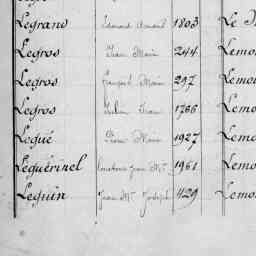 Legrand Edouard Amand 1803 Le
Legros Jean Marie 244 Lemo
Legros François Marie 297 Lemo
Legros Julien Jean 1766 Lemo
Legué Jean Marie 1927 Lemo
Leguérinel Jean Mie 1961 Lemo
Leguin Jean Mie Joseph 429 Lemo